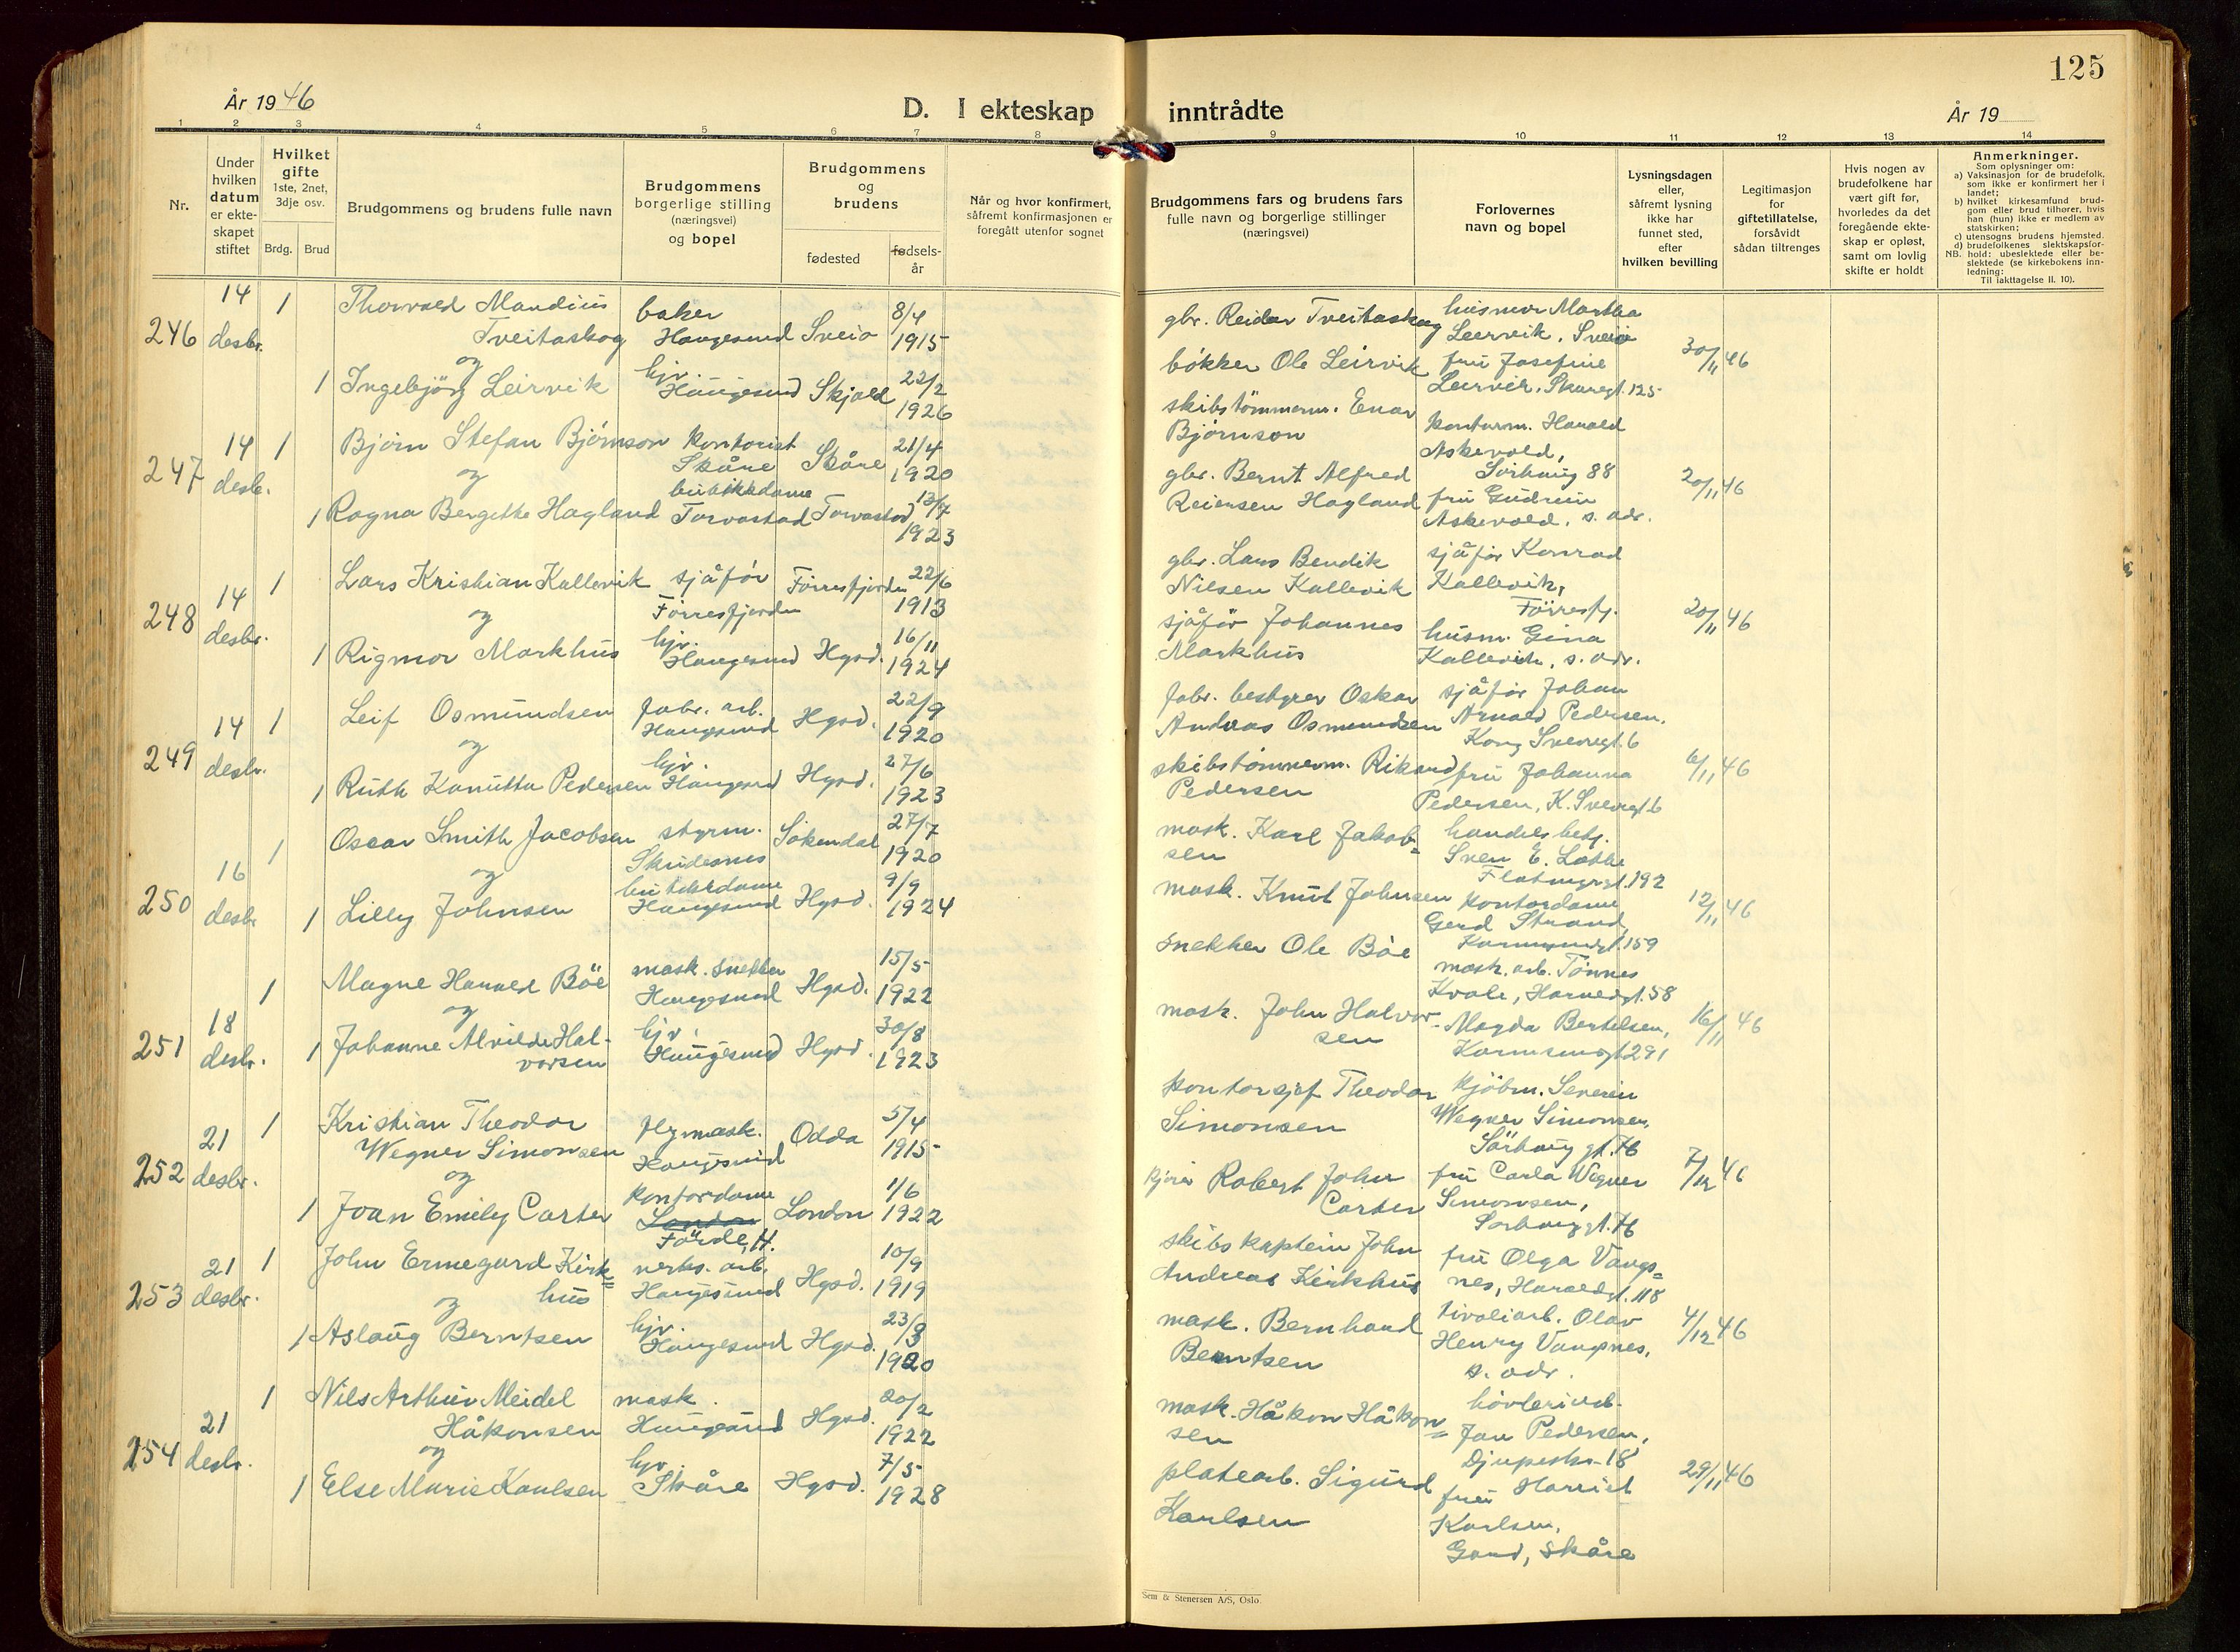 125
År 1946
D. I ekteskap inntrådte
År 19
1 2 3 4 5 6 7 8 9 10 11 12 13 14
Nr.
Under
hvilken
datum
er ekte-
skapet
stiftet
Hvilket
gifte
1ste, 2net,
3dje osv.
Brdg. Brud
Brudgommens og brudens fulle navn
Brudgommens
borgerlige stilling
(næringsvei)
og bopel
Brudgommens
og
brudens
fødested
fødsels-
år
Når og hvor konfirmert,
såfremt konfirmasjonen er
foregått utenfor sognet
Brudgommens fars og brudens fars
fulle navn og borgerlige stillinger
(næringsvei)
Forlovernes
navn og bopel
Lysningsdagen
eller,
såfremt lysning
ikke har
funnet sted,
efter
hvilken bevilling
Legitimasjon
for
giftetillatelse,
forsåvidt
sådan tiltrenges
Hvis nogen av
brudefolkene har
vært gift før,
hvorledes da det
foregående ekte-
skap er opløst,
samt om lovlig
skifte er holdt
Anmerkninger.
Som oplysninger om:
a) Vaksinasjon for de brudefolk,
som ikke er konfirmert her i
landet;
b) hvilket kirkesamfund brud-
gom eller brud tilhører, hvis
han (hun) ikke er medlem av
statskirken;
c) utensogns brudens hjemsted.
d) brudefolkenes slektskapsfor-
hold: ubeslektede eller be-
slektede (se kirkebokens inn-
ledning:
NB.
Til iakttagelse II. 10).
246 14 desbr. 1 Thorvald Mandius
Tveitaskog
baker
Haugesund Sveio 8/4 1915
og
1 Ingebjörg Leirvik
hjv.
Haugesund Skjold 22/2 1926
gbr. Reidar Tveitaskog
bökker Ole Leirvik
husmor Martha
Leervik, Sveio
fru Josefine
Leirvik, Skåregt. 125
30/11 46
247 14 desb. 1 Björn Stefan Björnson
kontorist
Skåre Skåre 21/4 1920
og
1 Ragna Bergitte Hagland
butikkdame
Torvastad Torvastad 13/7 1923
skibstömmerm. Enar
Björnson
gbr. Bernt Alfred
Reiersen Hagland
kontorm. Harald
Askevold,
Sörhaug 88
fru Gudrun
Askevold, s. adr.
20/11 46
248 14 desbr. 1 Lars Kristian Kallevik
sjåför
Förresfjorden Förresfjorden 22/6 1913
og
1 Rigmor Markhus
hjv.
Haugesund Hgsd. 16/11 1924
gbr. Lars Bendik
Nilsen Kallevik
sjåför Johannes
Markhus
sjåför Konrad
Kallevik,
Förresfj.
husm. Gina
Kallevik, s. adr.
20/11 46
249 14 desbr. 1 Leif Osmundsen
fabr. arb.
Haugesund Hgsd. 22/9 1920
og
1 Ruth Kanutta Pedersen
hjv.
Haugesund Hgsd. 27/6 1923
fabr. bestyrer Oskar
Andreas Osmundsen
skibstömmerm. Rikard
Pedersen
sjåför Johan
Arnold Pedersen,
Kong Sveregt. 6
fru Johanna
Pedersen, K. Sveregt. 6
6/11 46
250 16 desbr 1 Oscar Smith Jacobsen
styrm.
Skudesnes Sokendal 27/7 1920
og
1 Lilly Johnsen
butikkdame
Haugesund Hgsd. 9/9 1924
mask. Karl Jakob=
sen
mask. Knut Johnsen
handelsbetj.
Sven E. Lothe
Flotmyrgt. 192
kontordame
Gerd Strand,
Karmsundgt. 159
12/11 46
251 18 desbr. 1 Magne Harald Böe
mask. snekker
Haugesund Hgsd. 15/5 1922
og
1 Johanne Alvilde Hal-
vorsen
hjv.
Haugesund Hgsd. 30/8 1923
snekker Ole Böe
mask. John Halvor-
sen
mask. arb. Tönnes
Kvale, Haraldgt. 58
Magda Bertelsen,
Karmsundgt 291
16/11 46
252 21 desbr. 1 Kristian Theodor
Wegner Simonsen
flymask.
Haugesund Odda 5/4 1915
og
1 Joan Emily Carter
kontordame
London
Förde, H. London 1/6 1922
kontorsjef Theodor
Simonsen
Robert John
Carter
kjöbm. Severin
Wegner Simonsen,
Sörhauggt. 76
fru Carla Wegner
Simonsen,
Sörhauggt. 76
7/12 46
253 21 desbr. 1 John Ermegard Kirk=
hus
verks. arb.
Haugesund Hgsd. 10/9 1919
og
1 Aslaug Berntsen
hjv.
Haugesund Hgsd. 23/3 1920
skibskaptein John
Andreas Kirkhus
mask. Bernhard
Berntsen
fru Olga Vangs=
nes, Haraldgt. 118
tivoliarb. Olav
Henry Vangsnes,
s. adr.
4/12 46
254 21 desbr. 1 Nils Arthur Meidel
Håkonsen
mask.
Haugesund Hgsd. 20/2 1922
og
1 Else Marie Karlsen
hjv.
Skåre Hgsd. 7/5 1928
mask. Håkon Håkon=
sen
platearb. Sigurd
Karlsen
hövleriarb.
Jan Pedersen,
Djupeskr. 18
fru Harriet
Karlsen,
Gard, Skåre
29/11 46
Sem & Stenersen A/S, Oslo.